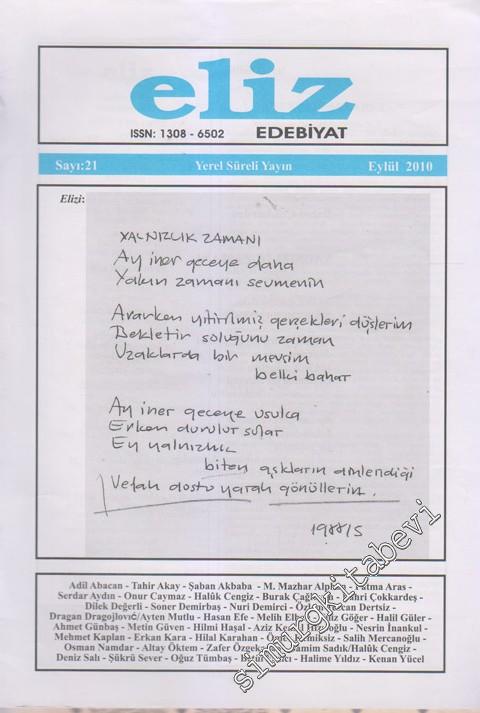 eliz
ISSN: 1308 - 6502 EDEBİYAT
Sayı:21 Yerel Süreli Yayın Eylül 2010
Elizi:
YALNIZLIK ZAMANI
Ay iner geceye daha
Yakın zamanı sevmenin
Ararken yitirilmiş gerçekleri düşlerim
Bekletir soluğunu zaman
Uzaklarda bir mevsim
belki bahar
Ay iner geceye usulca
Erken durulur sular
Ey yalnızlık
biten aşkların demlendiği
Vefalı dostu yaralı gönüllerin.
Adil Abacan - Tahir Akay - Şaban Akbaba - M. Mazhar Fatma Aras -
Serdar Aydın - Onur Caymaz - Halûk Cengiz - Burak Çokkardeş -
Dilek Değerli - Soner Demirbaş - Nuri Demirci - Dertsiz -
Dragan Dragojloviç/Ayten Mutlu - Hasan Efe - Melih Göğer - Halil Güler -
Ahmet Günbaş - Metin Güven - Hilmi Haşal - Aziz - Nesrin İnankul -
Mehmet Kaplan - Erkan Kara - Hilal Karahan - Salih Mercanoğlu -
Osman Namdar - Altay Öktem - Zafer Sadık/Halûk Cengiz -
Deniz Salı - Şükrü Sever - Oğuz Tümbaş - Halime Yıldız - Kenan Yücel
simurgkitabevi